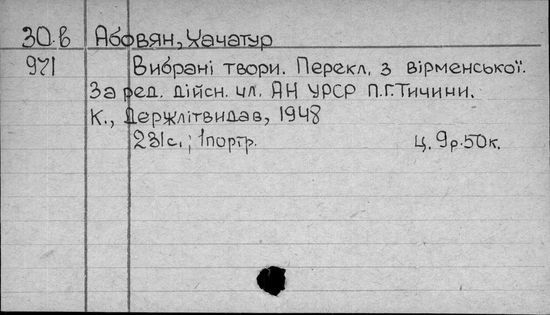 30.в Абовян, Хачатур
971 Вибрані твори. Перекл. з вірменської.
За ред. дійсн. чл. АН УРСР П.Г.Тичини.
К., Держлітвидав, 1948
231с.; 1портр. ц. 9р.50к.